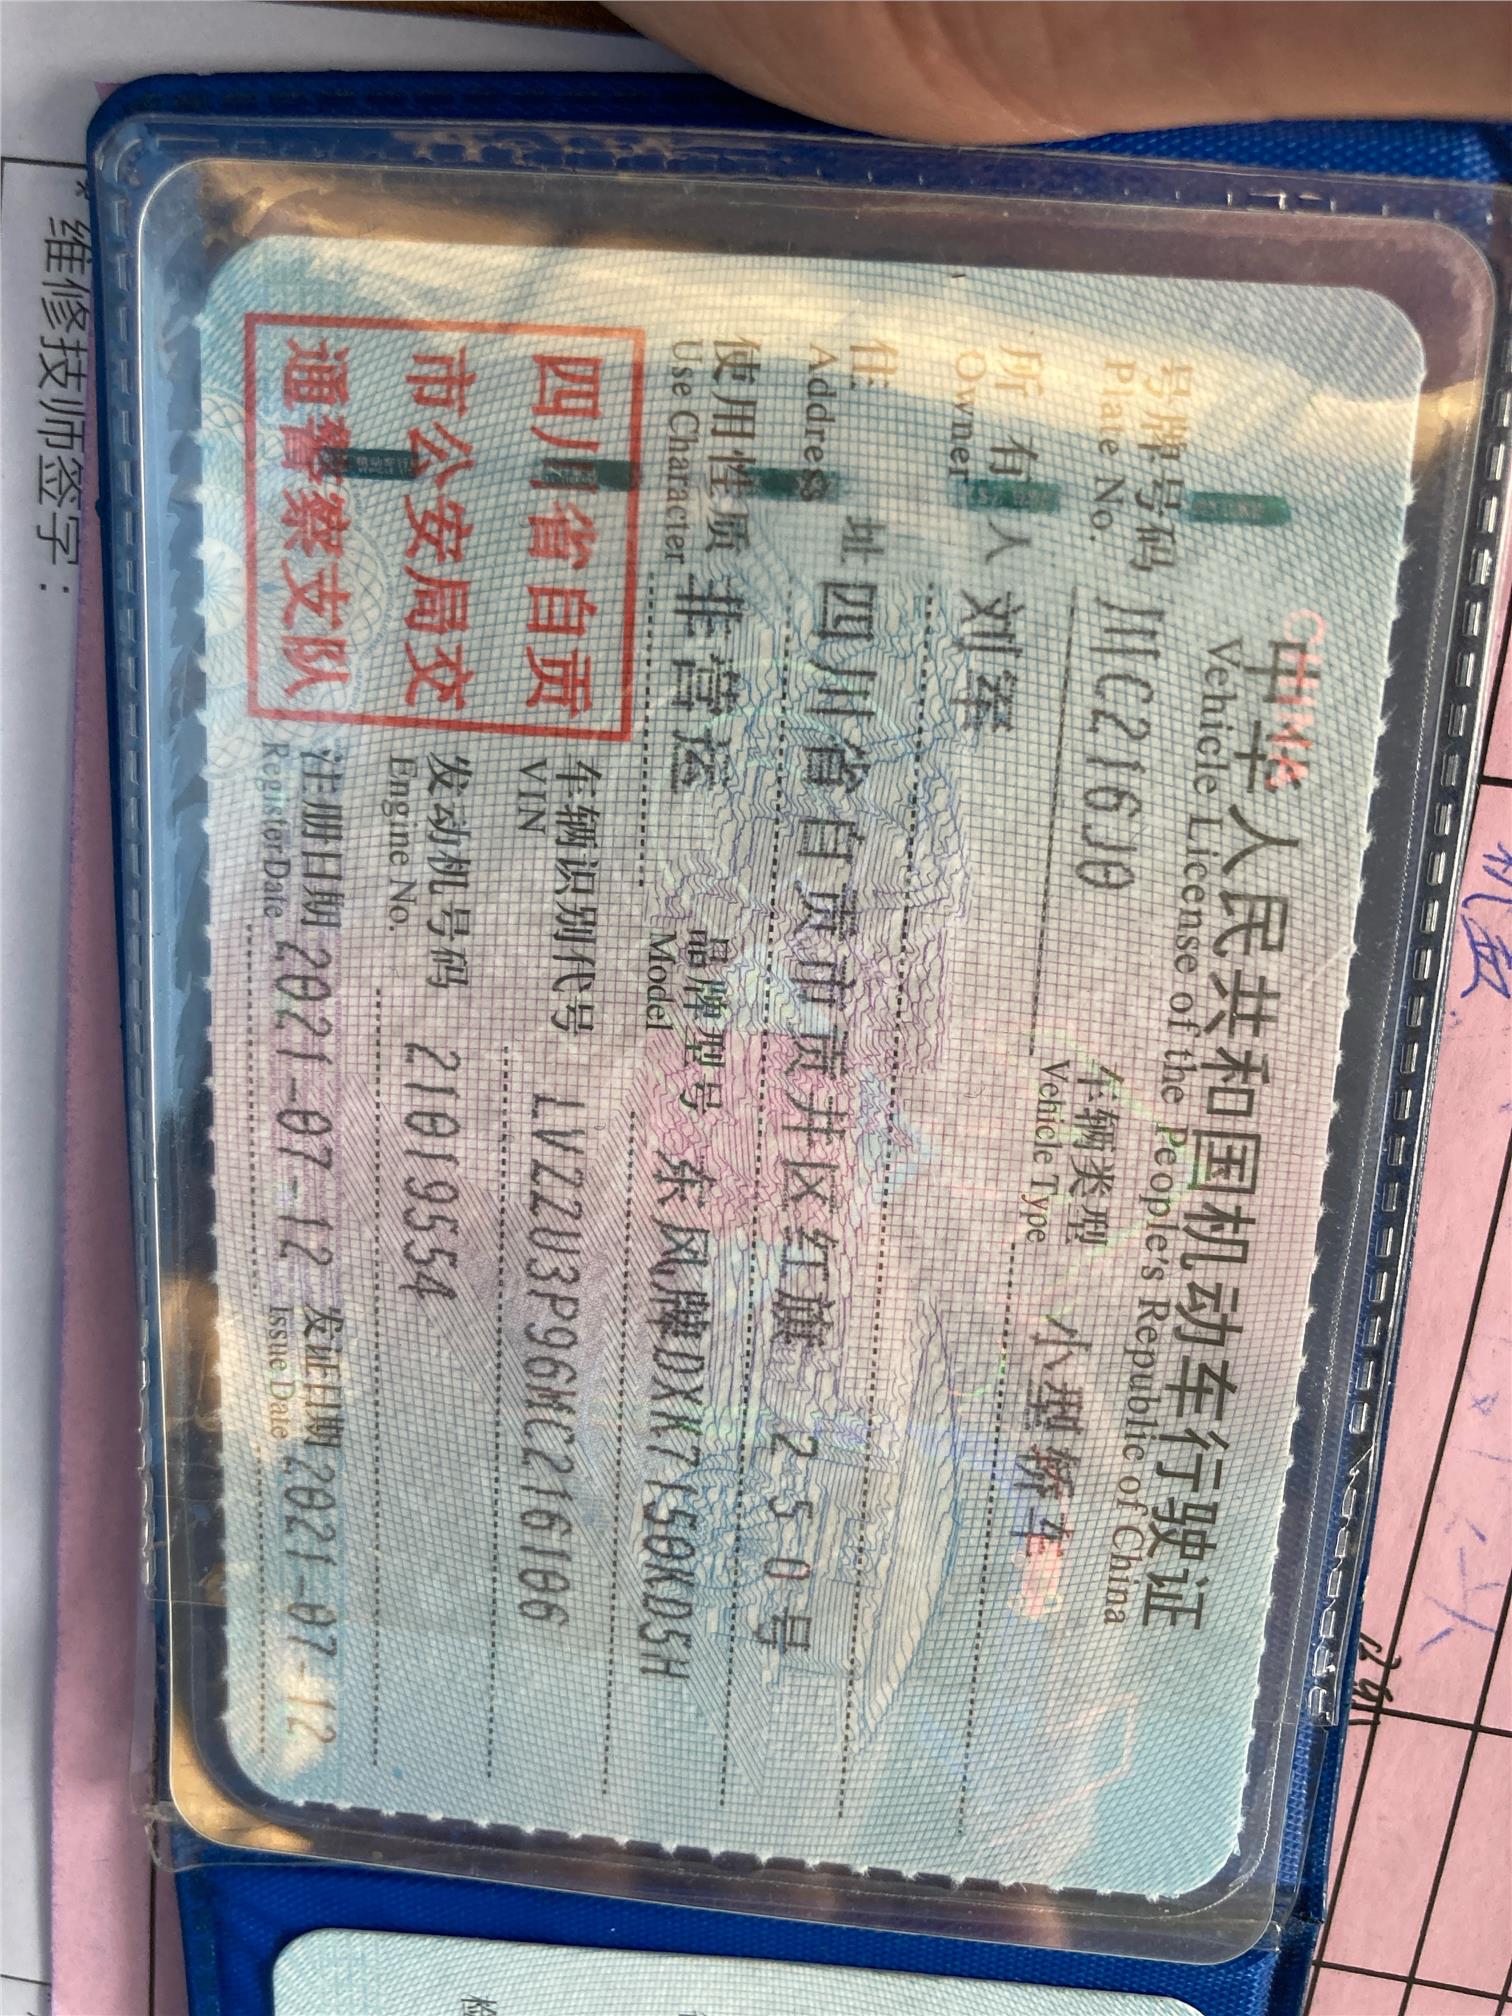 中华人民共和国机动车行驶证
Vehicle License of the People's Republic of China
号牌号码 川C216J0 车辆类型 小型轿车
Plate No. Vehicle Type
所有人
Owner
住址 四川省自贡市贡井区红旗 250号
Address
使用性质 非营运 品牌型号 东风牌DXK7150KD5H
Use Character Model
四川省自贡
市公安局交
通警察支队
车辆识别代号 LVZZU3P96MC216106
VIN
发动机号码 21019554
Engine No.
注册日期 2021-07-12 发证日期 2021-07-12
Register Date Issue Date
* 维修技师签字：